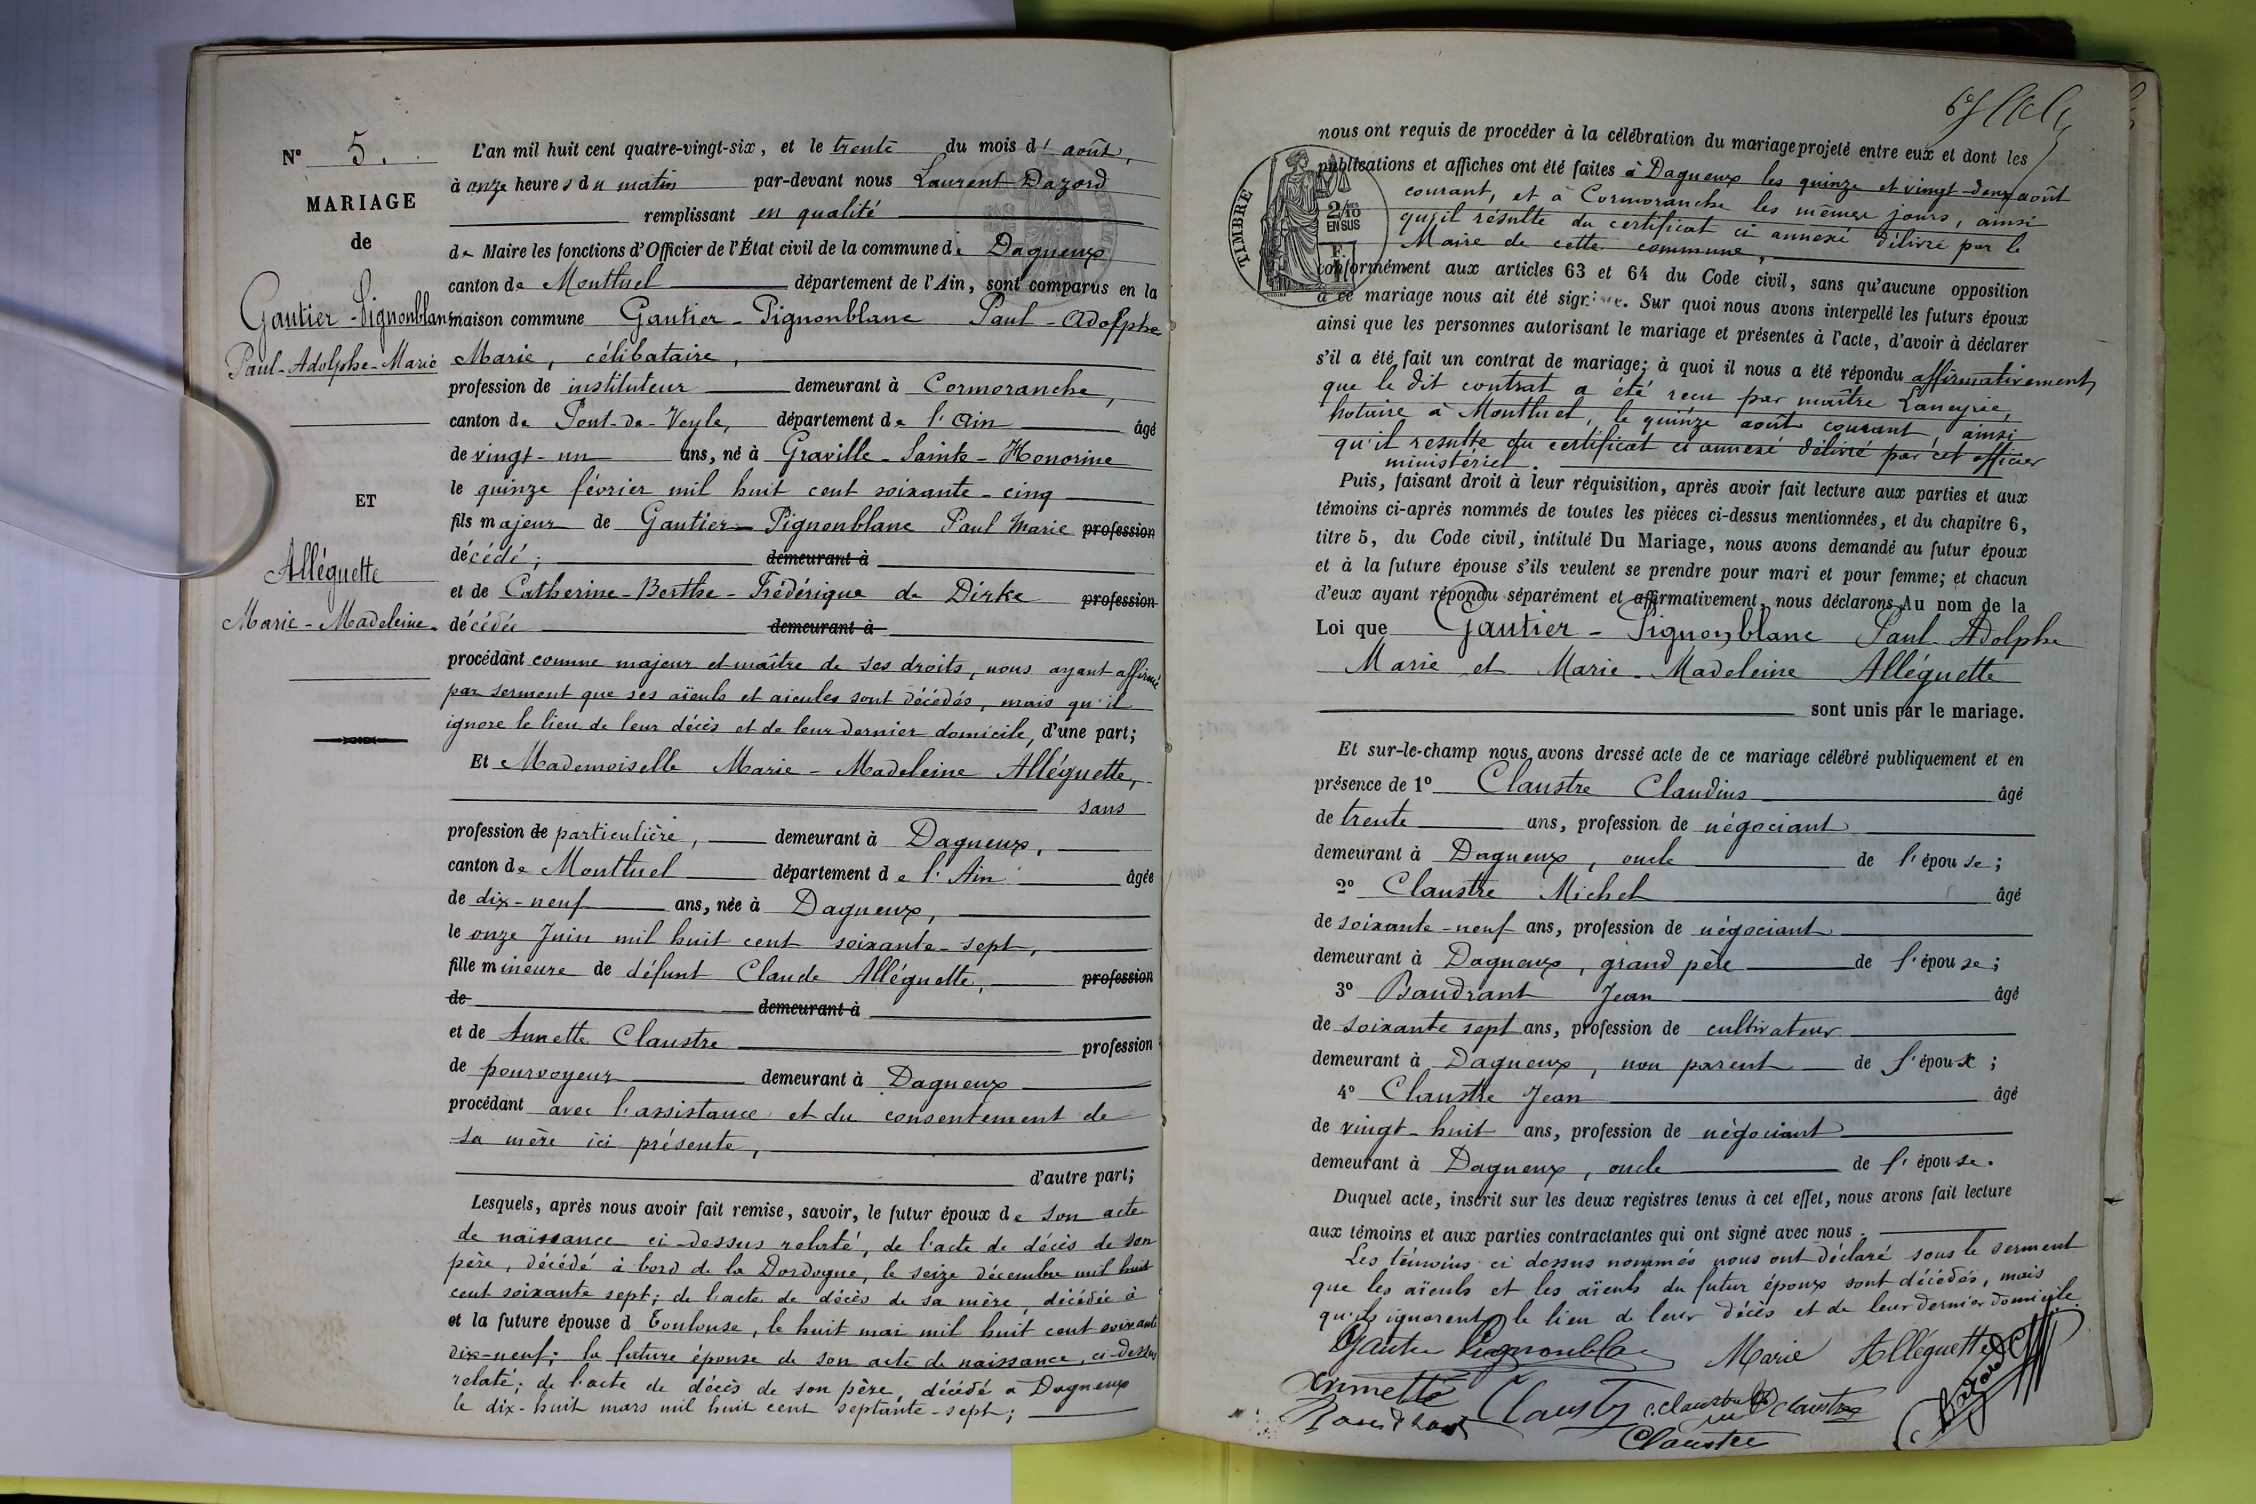 N° 5.
MARIAGE
de
Gautier-Pignonblanc
Paul-Adolphe-Marie
ET
Alléguette
Marie-Madeleine.
L'an mil huit cent quatre-vingt-six, et le trente du mois d'août,
à onze heures du matin par-devant nous Laurent Dazord
remplissant en qualité
de Maire les fonctions d'Officier de l'État civil de la commune de Dagneux
canton de Montluel département de l'Ain, sont comparus en la
maison commune Gautier-Pignonblanc Paul-Adolphe
Marie, célibataire,
profession de instituteur demeurant à Cormoranche,
canton de Pont-de-Veyle, département de l'Ain âgé
de vingt-un ans, né à Graville-Sainte-Honorine
le quinze février mil huit cent soixante-cinq
fils majeur de Gautier-Pignonblanc Paul Marie profession
décédé; demeurant à
et de Catherine-Berthe-Frédérique de Dirke profession
décédée demeurant à
procédant comme majeur et maître de ses droits, nous ayant affirmé
par serment que ses aïeuls et aieules sont décédés, mais qu'il
ignore le lieu de leur décès et de leur dernier domicile, d'une part;
Et Mademoiselle Marie-Madeleine Alléguette,
sans
profession de particulière, demeurant à Dagneux,
canton de Montluel département de l'Ain âgée
de dix-neuf ans, née à Dagneux,
le onze Juin mil huit cent soixante-sept,
fille mineure de défunt Claude Alléguette, profession
de demeurant à
et de Annette Claustre profession
de pourvoyeur demeurant à Dagneux
procédant avec l'assistance et du consentement de
sa mère ici présente,
d'autre part;
Lesquels, après nous avoir fait remise, savoir, le futur époux de son acte
de naissance ci-dessus relaté, de l'acte de décès de son
père, décédé à bord de la Dordogne, le seize décembre mil huit
cent soixante sept; de l'acte de décès de sa mère, décédée à
et la future épouse d Toulouse, le huit mai mil huit cent soixante
dix-neuf; la future épouse de son acte de naissance, ci-dessus
relaté; de l'acte de décès de son père, décédé à Dagneux
le dix-huit mars mil huit cent septante-sept;
TIMBRE
2/10
EN SUS
nous ont requis de procéder à la célébration du mariage projeté entre eux et dont les
publications et affiches ont été faites à Dagneux les quinze et vingt-deux août
courant, et à Cormoranche les mêmes jours, ainsi
qu'il résulte du certificat ci annexé délivré par le
Maire de cette commune,
conformément aux articles 63 et 64 du Code civil, sans qu'aucune opposition
à ce mariage nous ait été signifiée. Sur quoi nous avons interpellé les futurs époux
ainsi que les personnes autorisant le mariage et présentes à l'acte, d'avoir à déclarer
s'il a été fait un contrat de mariage; à quoi il nous a été répondu affirmativement,
que le dit contrat a été reçu par maître Laneyrie,
notaire à Montluel, le quinze août courant, ainsi
qu'il resulte du certificat ci annexé délivré par cet officier
ministériel.
Puis, faisant droit à leur réquisition, après avoir fait lecture aux parties et aux
témoins ci-après nommés de toutes les pièces ci-dessus mentionnées, et du chapitre 6,
titre 5, du Code civil, intitulé Du Mariage, nous avons demandé au futur époux
et à la future épouse s'ils veulent se prendre pour mari et pour femme; et chacun
d'eux ayant répondu séparément et affirmativement, nous déclarons Au nom de la
Loi que Gautier-Pignonblanc Paul-Adolphe
Marie et Marie-Madeleine Alléguette
sont unis par le mariage.
Et sur-le-champ nous avons dressé acte de ce mariage célébré publiquement et en
présence de 1° Claustre Claudius âgé
de trente ans, profession de négociant
demeurant à Dagneux, oncle de l'épouse;
2° Claustre Michel âgé
de soixante-neuf ans, profession de négociant
demeurant à Dagneux, grand père de l'épouse;
3° Baudrant Jean âgé
de soixante sept ans, profession de cultivateur
demeurant à Dagneux, non parent de l'époux;
4° Claustre Jean âgé
de vingt-huit ans, profession de négociant
demeurant à Dagneux, oncle de l'épouse.
Duquel acte, inscrit sur les deux registres tenus à cet effet, nous avons fait lecture
aux témoins et aux parties contractantes qui ont signé avec nous.
Les témoins ci dessus nommés nous ont déclaré sous le serment
que les aïeuls et les aïeuls du futur époux sont décédés, mais
qu'ils ignorent le lieu de leur décès et de leur dernier domicile.
Gautier Pignonblanc Marie Alléguette
Annette Claustre Claustre
Baudrant Claustre Dazord